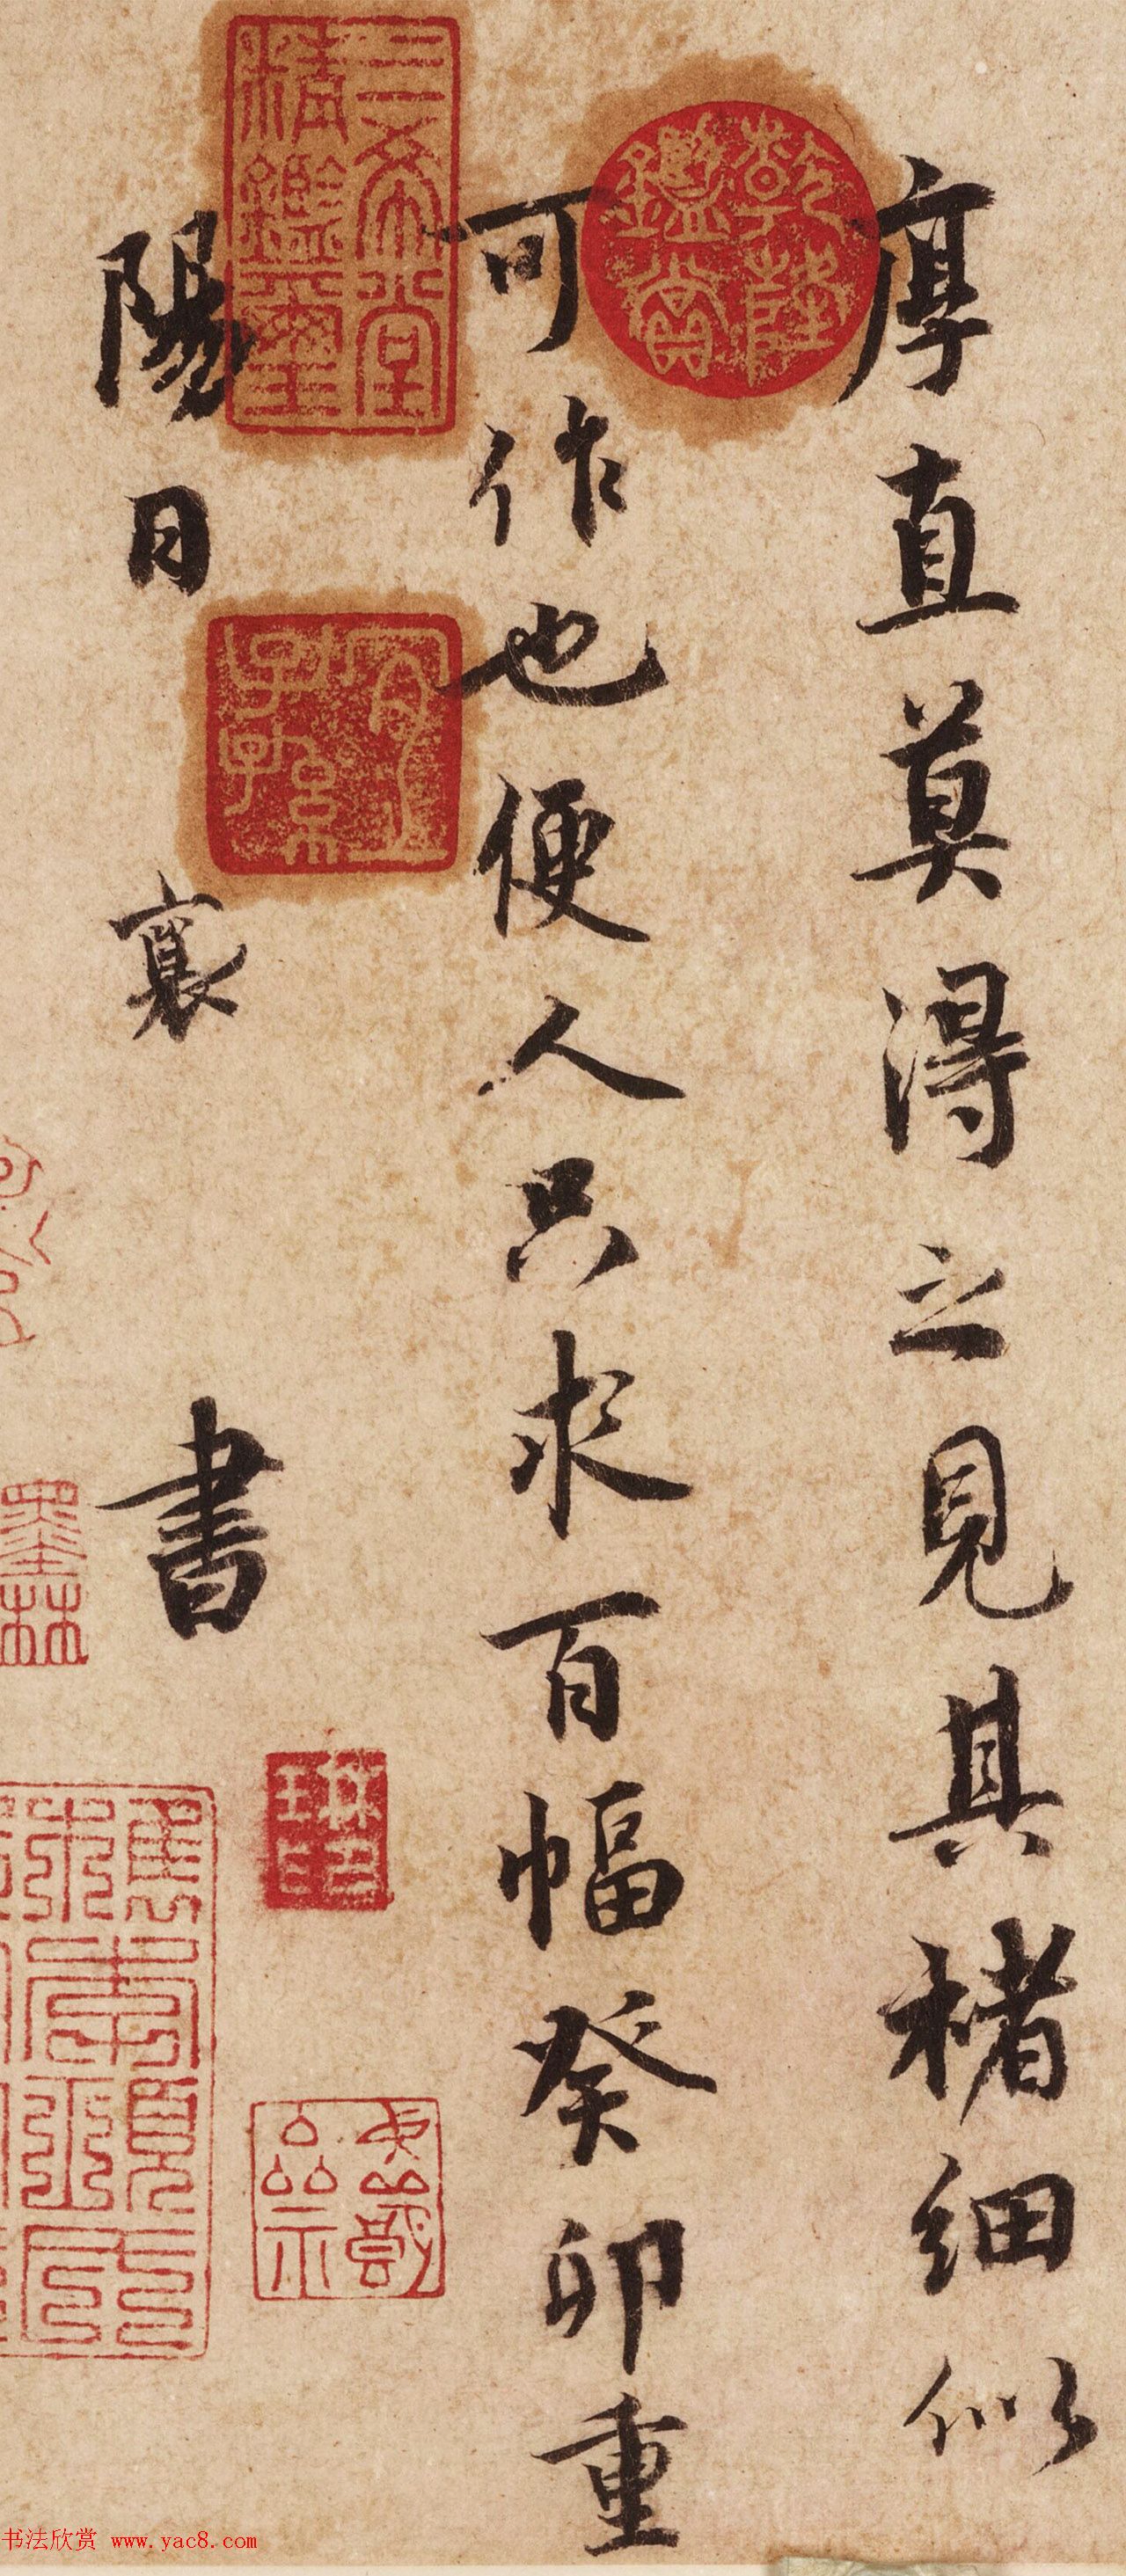 厚直莫得之見其楮細似
可作也便人只求百幅癸卯重
陽日 襄 書
乾隆鑑賞
三希堂精鑑璽
宜子孫
墨林
书法欣赏 www.yac8.com